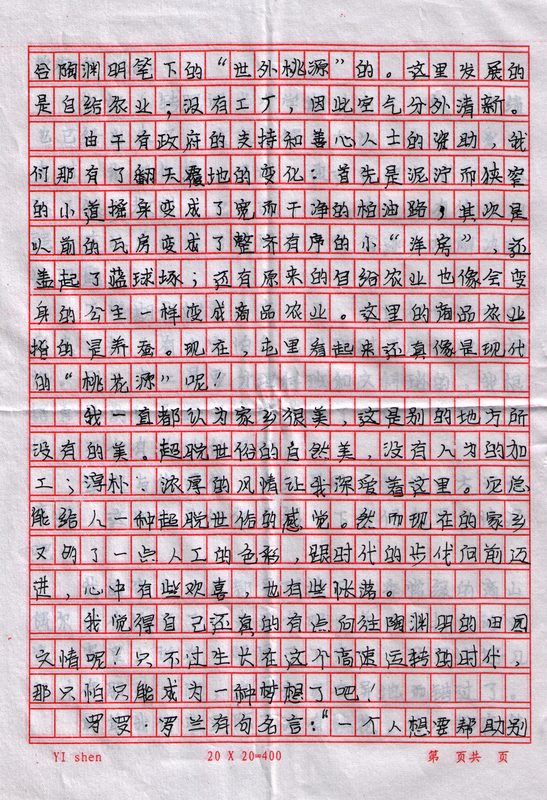 合陶渊明笔下的“世外桃源”的。这里发展的
是自给农业，没有工厂，因此空气分外清新。
由于有政府的支持和善心人士的资助，我
们那有了翻天覆地的变化：首先是泥泞而狭窄
的小道摇身变成了宽而干净的柏油路，其次是
以前的瓦房变成了整齐有序的小“洋房”，还
盖起了蓝球场；还有原来的自给农业也像会变
身的公主一样变成商品农业。这里的商品农业
指的是养蚕。现在，屯里看起来还真像是现代
的“桃花源”呢！
我一直都认为家乡很美，这是别的地方所
没有的美。超脱世俗的自然美，没有人为的加
工；淳朴、浓厚的风情让我深爱着这里。它总
能给人一种超脱世俗的感觉。然而现在的家乡
又多了一点人工的色彩，跟时代的步伐向前迈
进，心中有些欢喜，也有些怅落。
我觉得自己还真的有点向往陶渊明的田园
文情呢！只不过生长在这个高速运转的时代，
那只怕只能成为一种梦想了吧！
罗曼·罗兰有句名言：“一个人想要帮助别
YI shen 20 X 20=400 第 页共 页